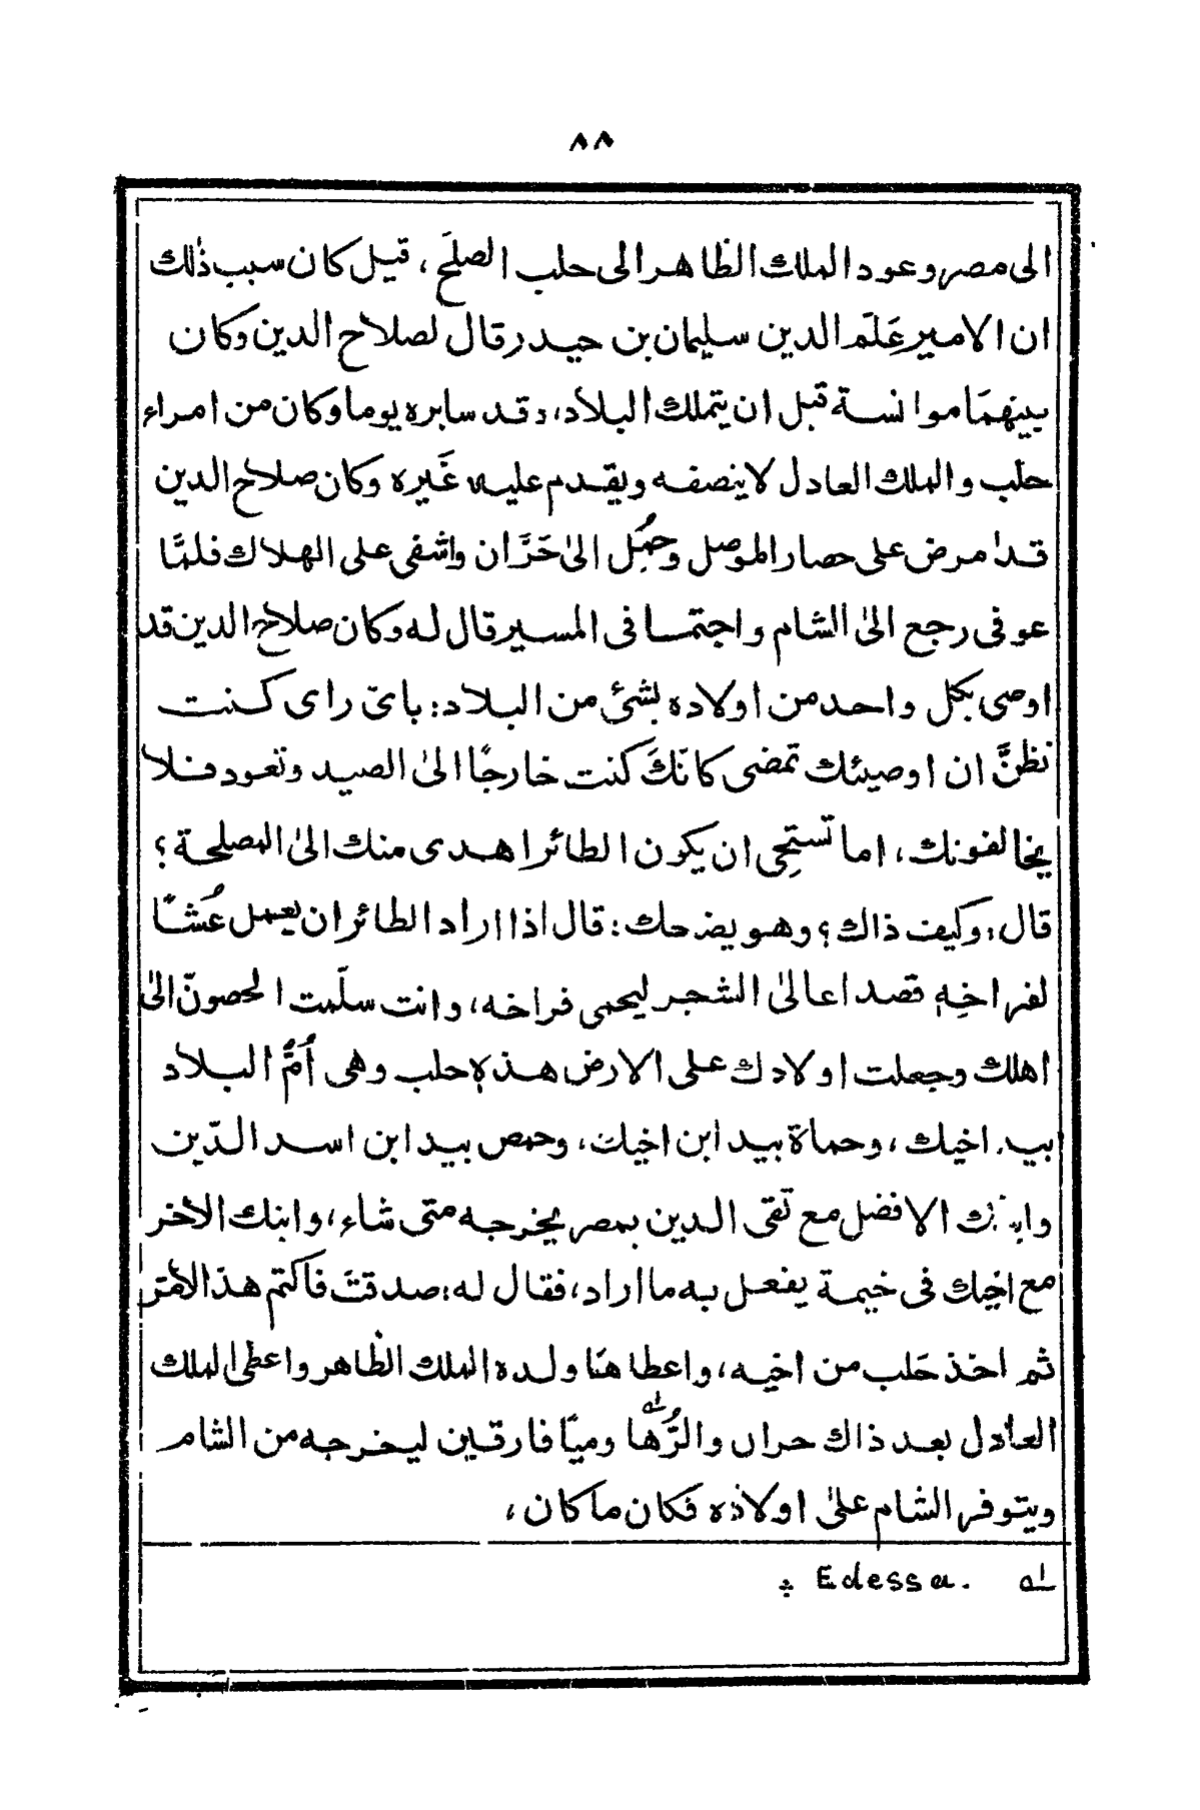 ٨٨
الى مصر وعود الملك الظاهر الى حلب الصلَح، قيل كان سبب ذٰلك
ان الامير عَلَم الدين سليمان بن حيدر قال لصلاح الدين وكان
بينهمَا موانسة قبل ان يتملك البلاد، وقد سابره يوما وكان من امراء
حلب والملك العادل لا ينصفه ويقدم عليه غَيره وكان صلاح الدين
قد مرض على حصار الموصل وحُمِل الىٰ حَرَّان واشفى على الهلاك فلمَّا
عوفى رجع الىٰ الشام واجتمعا فى المسير قال له وكان صلاح الدين قد
اوصى بكل واحد من اولاده بشئ من البلاد: باىّ راى كنت
تظنَّ ان اوصيتك تمضى كانّكَ كنت خارجًا الىٰ الصيد وتعود فلا
يخالفونك، اما تستحِى ان يكون الطائر اهدى منك الىٰ المصلحة؟
قال: وكيف ذاك؟ وهو يضحك: قال اذا اراد الطائر ان يعمل عُشّا
لفراخِهِ قصد اعالىٰ الشجر ليحمى فراخه، وانت سلّمت الحصونّ الىٰ
اهلك وجعلت اولادك على الارض هذه حلب وهى اُمُّ البلاد
بيد اخيك، وحماة بيد ابن اخيك، وحمص بيد ابن اسد الدّين
وابنك الافضل مع تقى الدين بمصر يخرجه متى شاء، وابنك الآخر
مع اخيك فى خيمة يفعل به ما اراد، فقال له: صدقتَ فاكتم هذا الامَر
ثم اخذ حَلب من اخيه، واعطاهَا ولده الملك الظاهر واعطى الملك
العادل بعد ذاك حران والرُّها لـه وميّا فارقين ليخرجه من الشام
ويتوفر الشام علىٰ اولاده فكان ما كان،
لـه Edessa. ؞